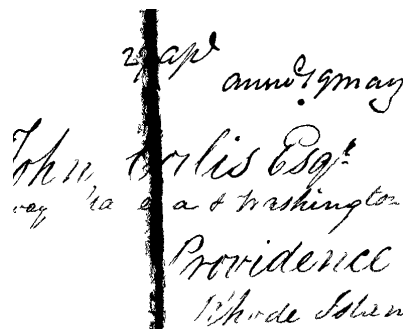 29 apl
answd 19 may
John Corlis Esqr
way & Washington
Providence
Rhode Islan